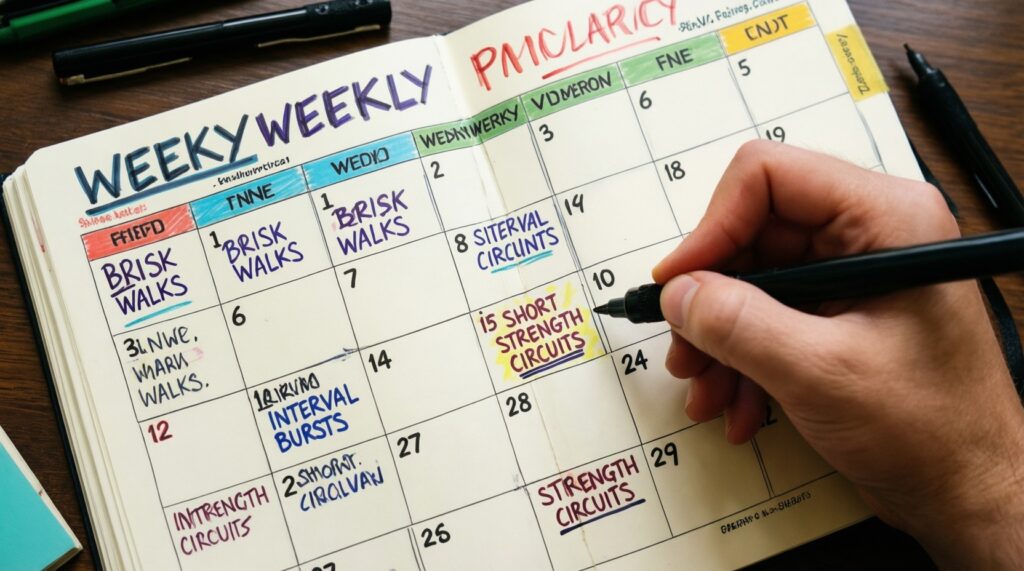 WEEKY WEEKLY
PMCLARITY
FHEFD
TNNE
WEDIO
WEDNYWERKY
VDMERON
FNE
CNJT
BRISK
WALKS
1 BRISK
WALKS
1 BRISK
WALKS
2
3
6
5
WALKS.
6
7
8 SITERVAL
CIRCUNTS
14
18
19
12
INTERVAL
BURSTS
14
i5 SHORT
STRENGTH
CIRCUITS
10
INTRENGTH
CIRCUITS
2 SHORT.
27
28
24
26
STRENGTH
CIRCUITS
29